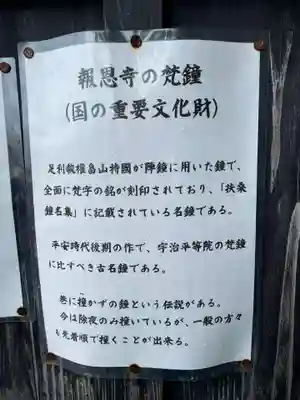 報恩寺の梵鐘
(国の重要文化財)
足利叛将畠山持國が陣鐘に用いた鐘で、
全面に梵字の銘が刻印されており、「扶桑
鐘名集」に記載されている名鐘である。
平安時代後期の作で、宇治平等院の梵鐘
に比すべき古名鐘である。
巷に撞かずの鐘という伝説がある。
今は除夜のみ撞いているが、一般の方々
も先着順で撞くことが出来る。